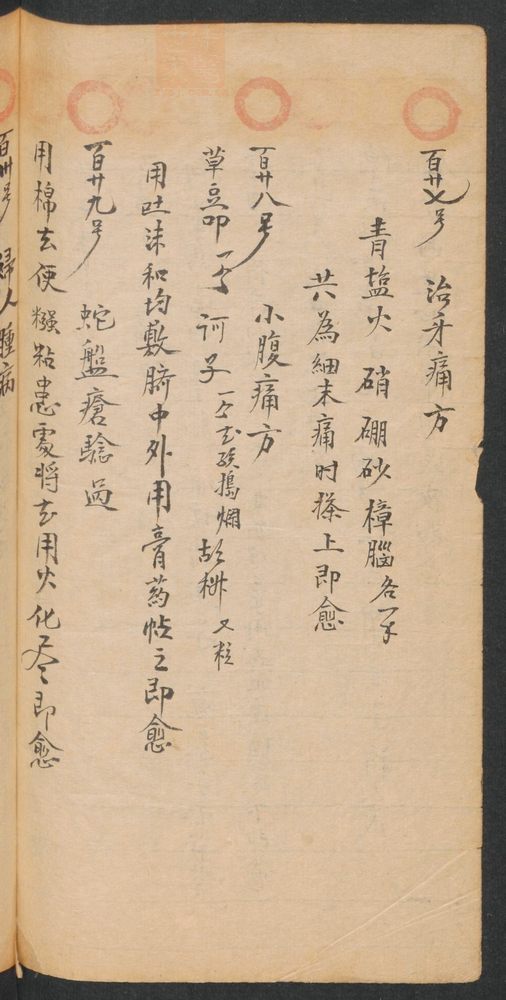 百廿七号 治牙痛方
青塩 火硝 硼砂 樟腦各一
共為細末痛时搽上即愈
百廿八号 小腹痛方
草豆叩一个 诃子一个去核搗爛 胡椒 粒
用吐沫和均敷臍中外用膏药帖之即愈
百廿九号 蛇盤瘡 驗过
用棉去便 粘患處将去用火化尽即愈
百卅号 婦人腫病